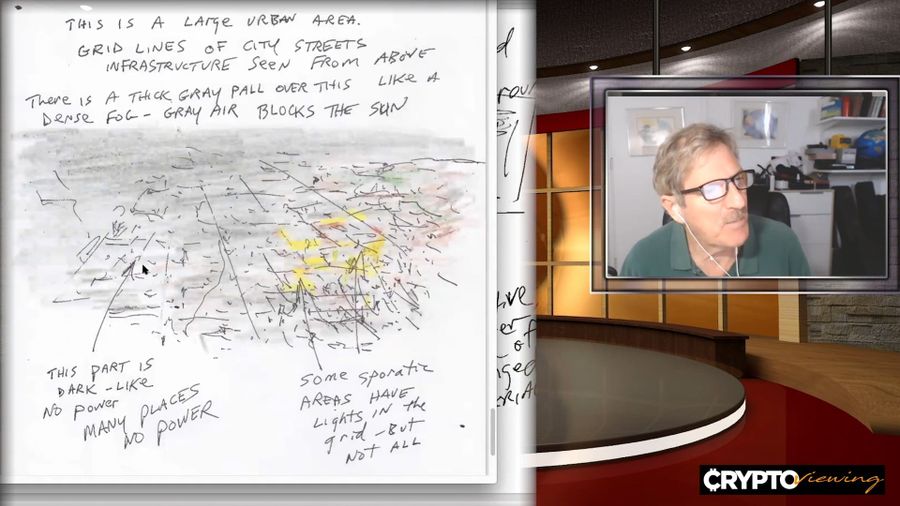 THIS IS A LARGE URBAN AREA.
GRID LINES OF CITY STREETS
INFRASTRUCTURE SEEN FROM ABOVE
THERE IS A THICK GRAY PALL OVER THIS LIKE A
DENSE FOG - GRAY AIR BLOCKS THE SUN
THIS PART IS
DARK - LIKE
NO POWER
MANY PLACES
NO POWER
SOME SPORATIC
AREAS HAVE
LIGHTS IN THE
grid - BUT
NOT ALL
CRYPTOViewing